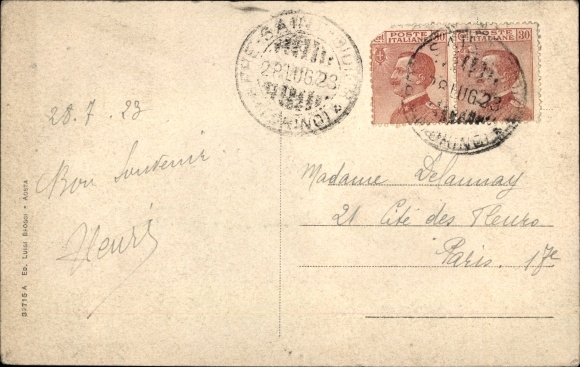 28 LUG 23
POSTE ITALIANE 30
POSTE ITALIANE 30
28 LUG 23
28.7.23
Bon Souvenir
Henri
Madame Delaunay
21 Cité des Fleurs
Paris. 17e
Ed. Luigi Broggi - Aosta